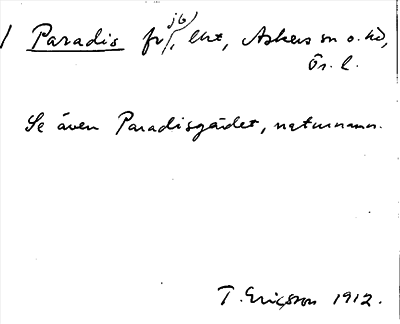 Paradis fr jb/, lht, Askers sn o. hd,
Ör. l.
Se även Paradisgärdet, naturnamn.
T. Ericsson 1912.